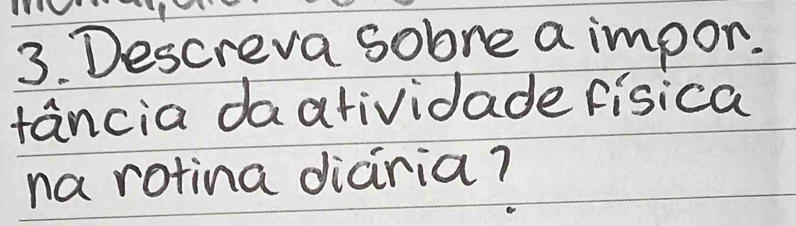 3. Descreva sobre a impor.
tância da atividade física
na rotina diária?